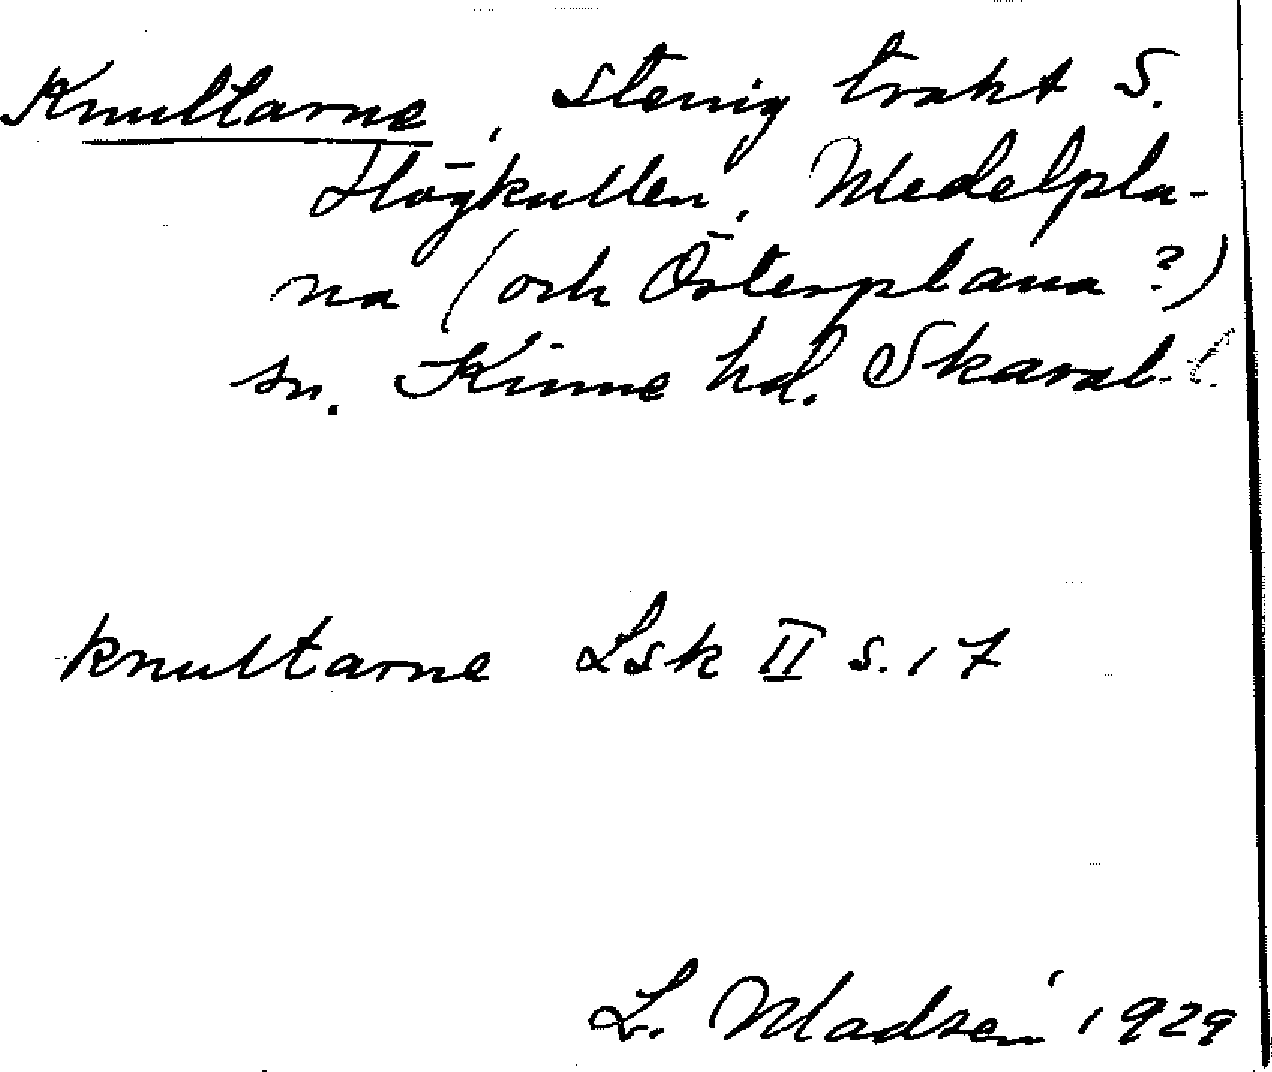 Knultarne, stenig trakt S.
Högkullen, Medelpla-
na (och Österplana?)
sn. Kinne hd. Skarab. l.
knultarne Lsk II s. 17
L. Madsén 1929